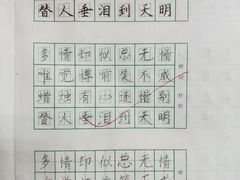 替人垂泪到天明
多情却似总无情
唯觉樽前笑不成
蜡烛有心还惜别
替人垂泪到天明
多情却似总无情
唯觉樽前笑不成